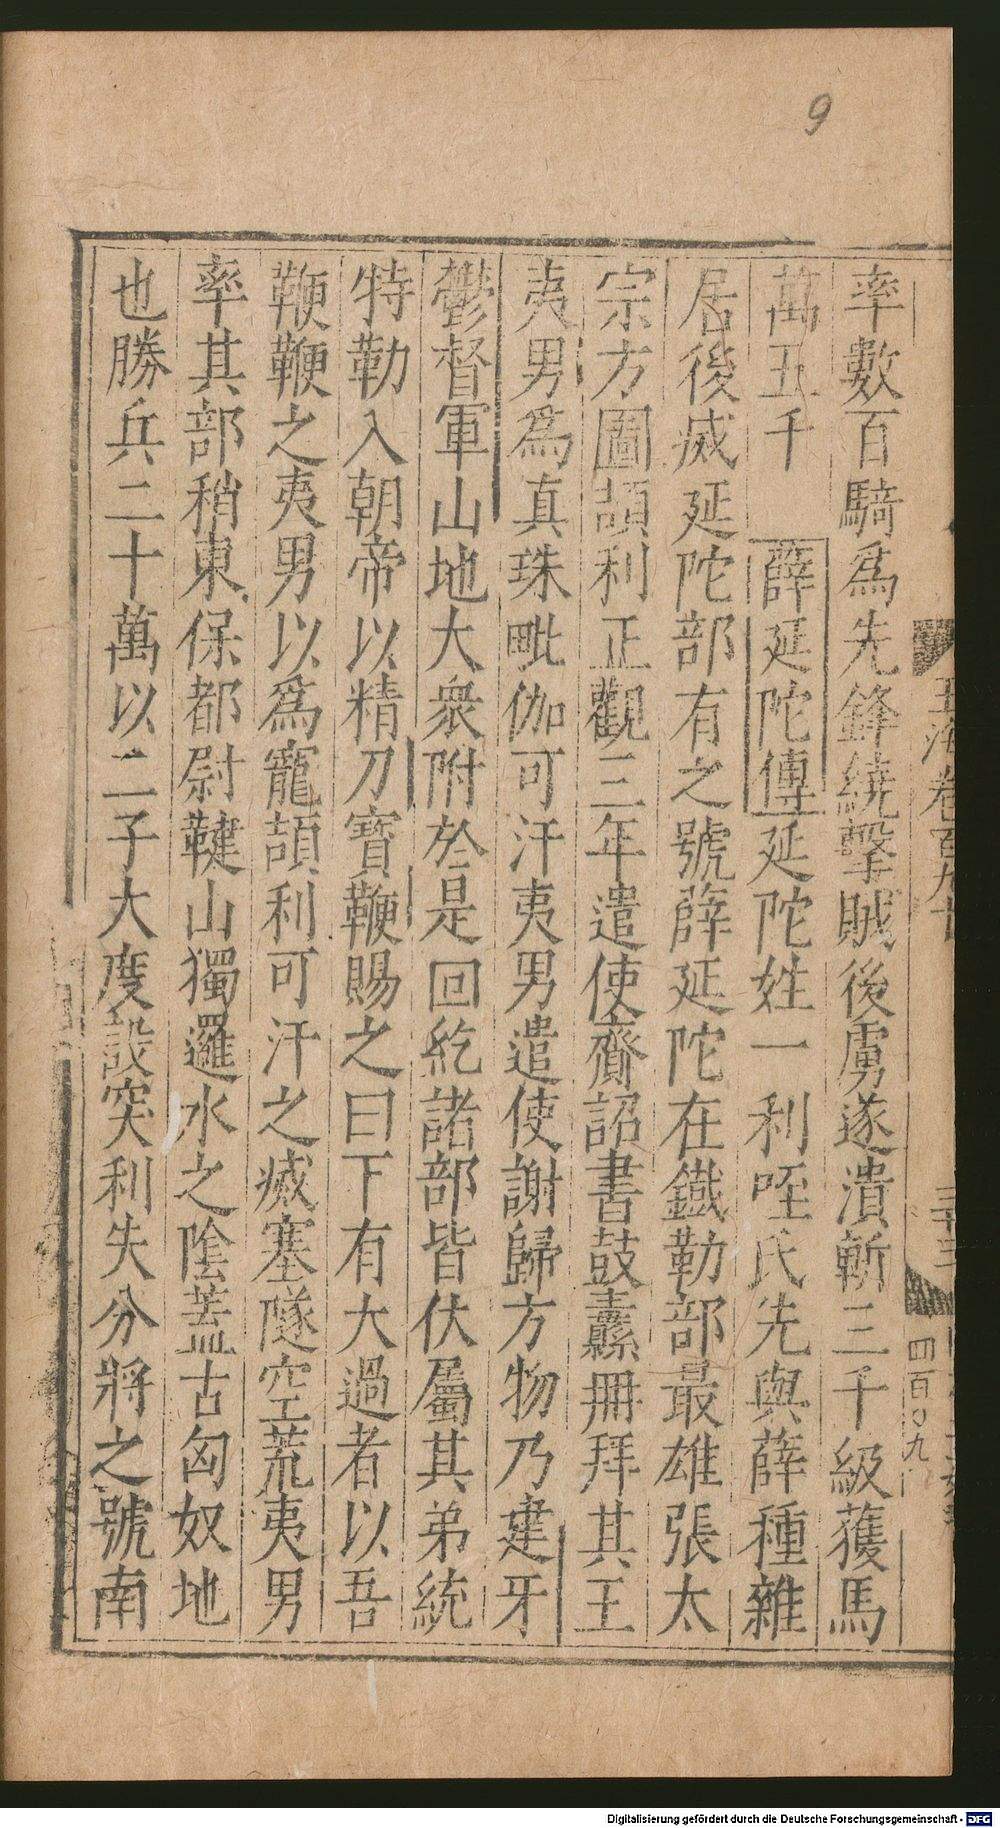 9
率數百騎爲先鋒繞擊賊後虜遂潰斬三千級獲馬
萬五千　薛延陀傳延陀姓一利咥氏先與薛種雜
居後滅延陀部有之號薛延陀在鐵勒部最雄張太
宗方圖頡利正觀三年遣使齎詔書鼓纛冊拜其王
夷男爲真珠毗伽可汗夷男遣使謝歸方物乃建牙
鬱督軍山地大衆附於是回紇諸部皆伏屬其弟統
特勒入朝帝以精刀寶鞭賜之曰下有大過者以吾
鞭鞭之夷男以爲寵頡利可汗之滅塞隧空荒夷男
率其部稍東保都尉鞬山獨邏水之陰蓋古匈奴地
也勝兵二十萬以二子大度設突利失分將之號南
玉海卷百九十
四百〇九
Digitalisierung gefördert durch die Deutsche Forschungsgemeinschaft - DFG